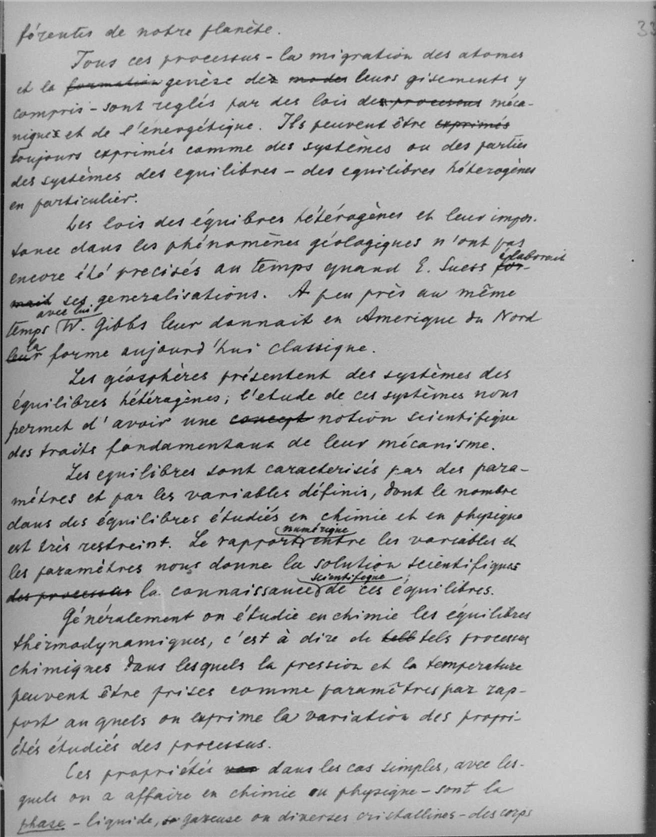 33
férents de notre planète.
Tous ces processus – la migration des atomes
et la formation genèse de modes leurs gisements y
compris – sont reglés par des lois des processus méca-
niques et de l'énergétique. Ils peuvent être exprimés
toujours exprimés comme des systèmes ou des parties
des systèmes des equilibres – des equilibres hétérogènes
en particulier.
Les lois des équibres hétérogènes et leur impor-
tance dans les phénomènes géologiques n'ont pas
encore été precisés au temps quand E. Suess for- élaborait
mait ses generalisations. A peu près au même
temps avec lui W. Gibbs leur donnait en Amerique du Nord
leur la forme aujourd'hui classique.
Les géosphères présentent des systèmes des
équilibres hétérogènes; l'etude de ces systèmes nous
permet d'avoir une concept notion scientifique
des traits fondamentaux de leur mécanisme.
Les equilibres sont caracterisés par des para-
mètres et par les variables définis, dont le nombre
dans des équilibres étudiés en chimie et en physique
est très restreint. Le rapport numérique entre les variables et
les paramètres nous donne la solution scientifique
des processus la connaissance scientifique de ces équilibres.
Généralement on étudie en chimie les équilibres
thermodynamiques, c'est à dire de tell tels processus
chimiques dans lesquels la pression et la temperature
peuvent être prises comme paramètres par rap-
port au quels on exprime la variation des propri-
étés étudiés des processus.
Ces propriétés var dans les cas simples, avec les-
quels on a affaire en chimie ou physique – sont la
phase – liquide, gazeuse ou diverses cristallines – des corps